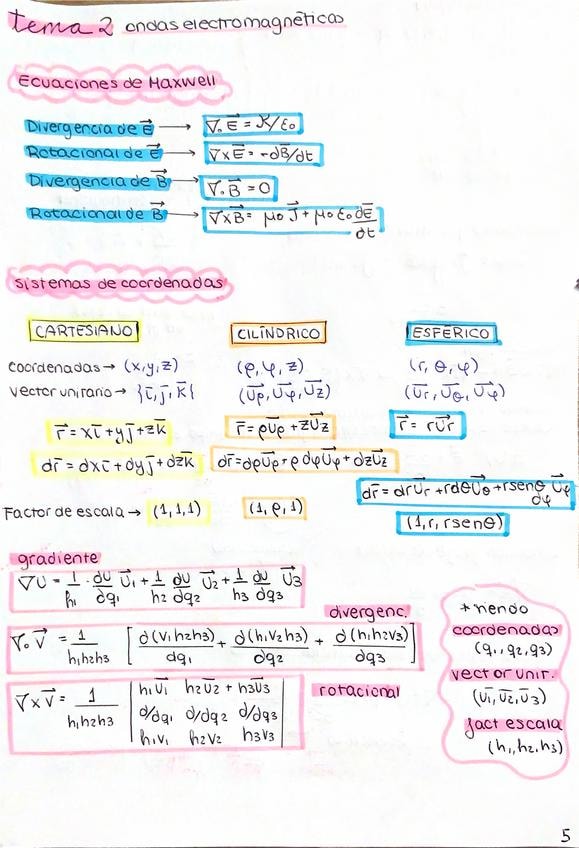 tema 2 ondas electromagnéticas
Ecuaciones de Maxwell
Divergencia de E⃗ → ∇⃗. E⃗ = ρ/ε₀
Rotacional de E⃗ → ∇⃗xE⃗ = -dB⃗/dt
Divergencia de B⃗ → ∇⃗. B⃗ = 0
Rotacional de B⃗ → ∇⃗xB⃗ = μ₀ J⃗ + μ₀ ε₀ dE⃗/dt
Sistemas de coordenadas
CARTESIANO CILÍNDRICO ESFÉRICO
Coordenadas → (x,y,z) (ρ,φ,z) (r,θ,φ)
Vector unitario → {i⃗, j⃗, k⃗} (U⃗ρ, U⃗φ, U⃗z) (U⃗r, U⃗θ, U⃗φ)
r⃗ = xi⃗ + yj⃗ + zk⃗ r⃗ = ρU⃗ρ + zU⃗z r⃗ = rU⃗r
dr⃗ = dxi⃗ + dyj⃗ + dzk⃗ dr⃗ = dρU⃗ρ + ρ dφU⃗φ + dzU⃗z
dr⃗ = drU⃗r + rdθU⃗θ + rsenθ U⃗φ dφ
Factor de escala → (1,1,1) (1,ρ,1) (1,r,rsenθ)
gradiente
∇U = 1/h₁ · dU/dq₁ U⃗₁ + 1/h₂ dU/dq₂ U⃗₂ + 1/h₃ dU/dq₃ U⃗₃
divergenc.
∇⃗. V⃗ = 1/h₁h₂h₃ [d(V₁h₂h₃)/dq₁ + d(h₁V₂h₃)/dq₂ + d(h₁h₂V₃)/dq₃]
rotacional
∇⃗ x V⃗ = 1/h₁h₂h₃ | h₁U⃗₁ h₂U⃗₂ + h₃U⃗₃ |
| d/dq₁ d/dq₂ d/dq₃ |
| h₁V₁ h₂V₂ h₃V₃ |
*nendo
coordenadas
(q₁,q₂,q₃)
vector unir.
(U⃗₁,U⃗₂,U⃗₃)
fact escala
(h₁,h₂,h₃)
5